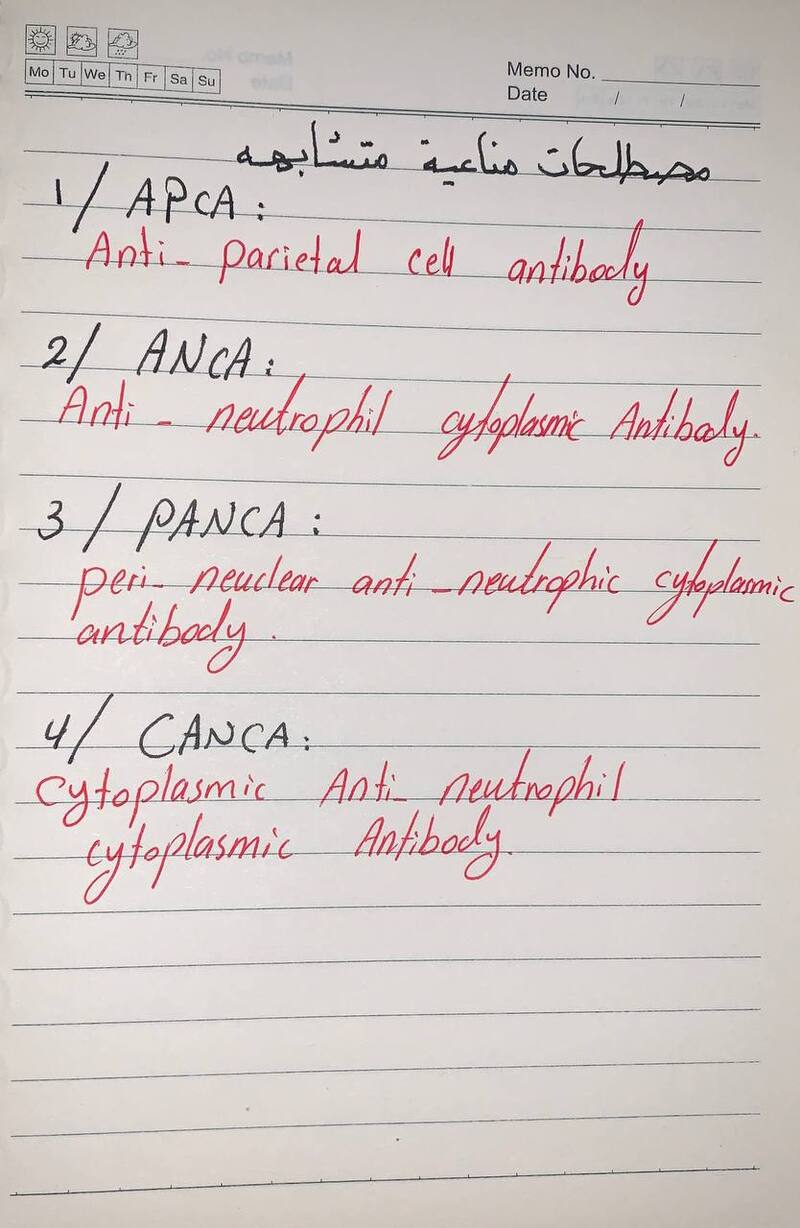 Mo Tu We Th Fr Sa Su
Memo No.
Date / /
مصطلحات مناعية متشابهه
1/ APCA :
Anti- parietal cell antibody
2/ ANCA :
Anti - neutrophil cytoplasmic Antibody.
3 / PANCA :
peri- neuclear anti -neutrophic cytoplasmic
antibody.
4/ CANCA :
Cytoplasmic Anti- neutrophil
cytoplasmic Antibody.